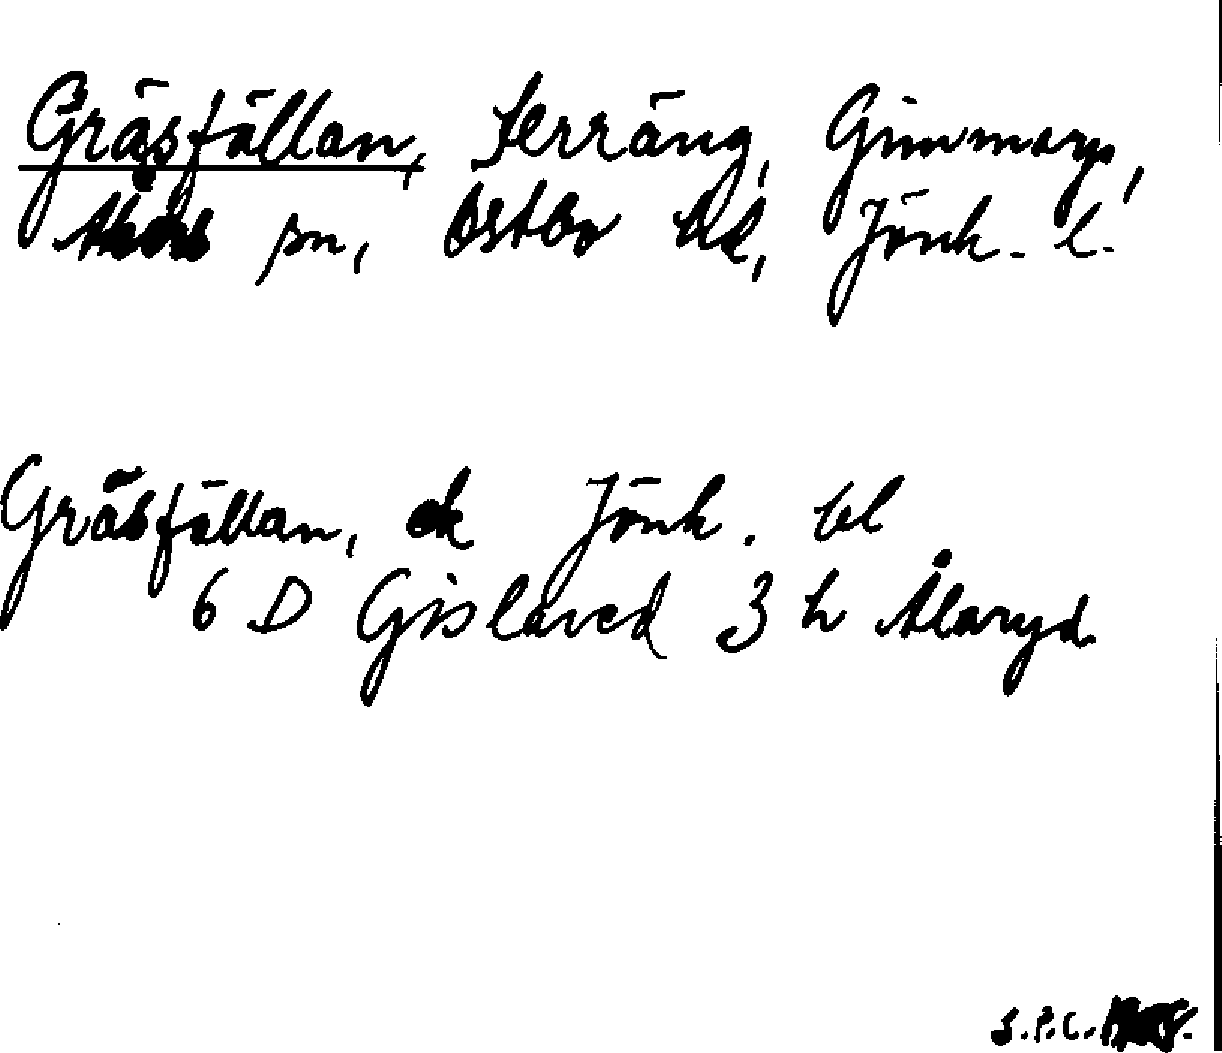 Gräsfällan, Terräng, Gimmarp,
Åkers sn, Östbo hd, Jönk. l.
Gräsfällan, ek Jönk. bl
6 D Gislaved 3 h Ålaryd
S.P.C.